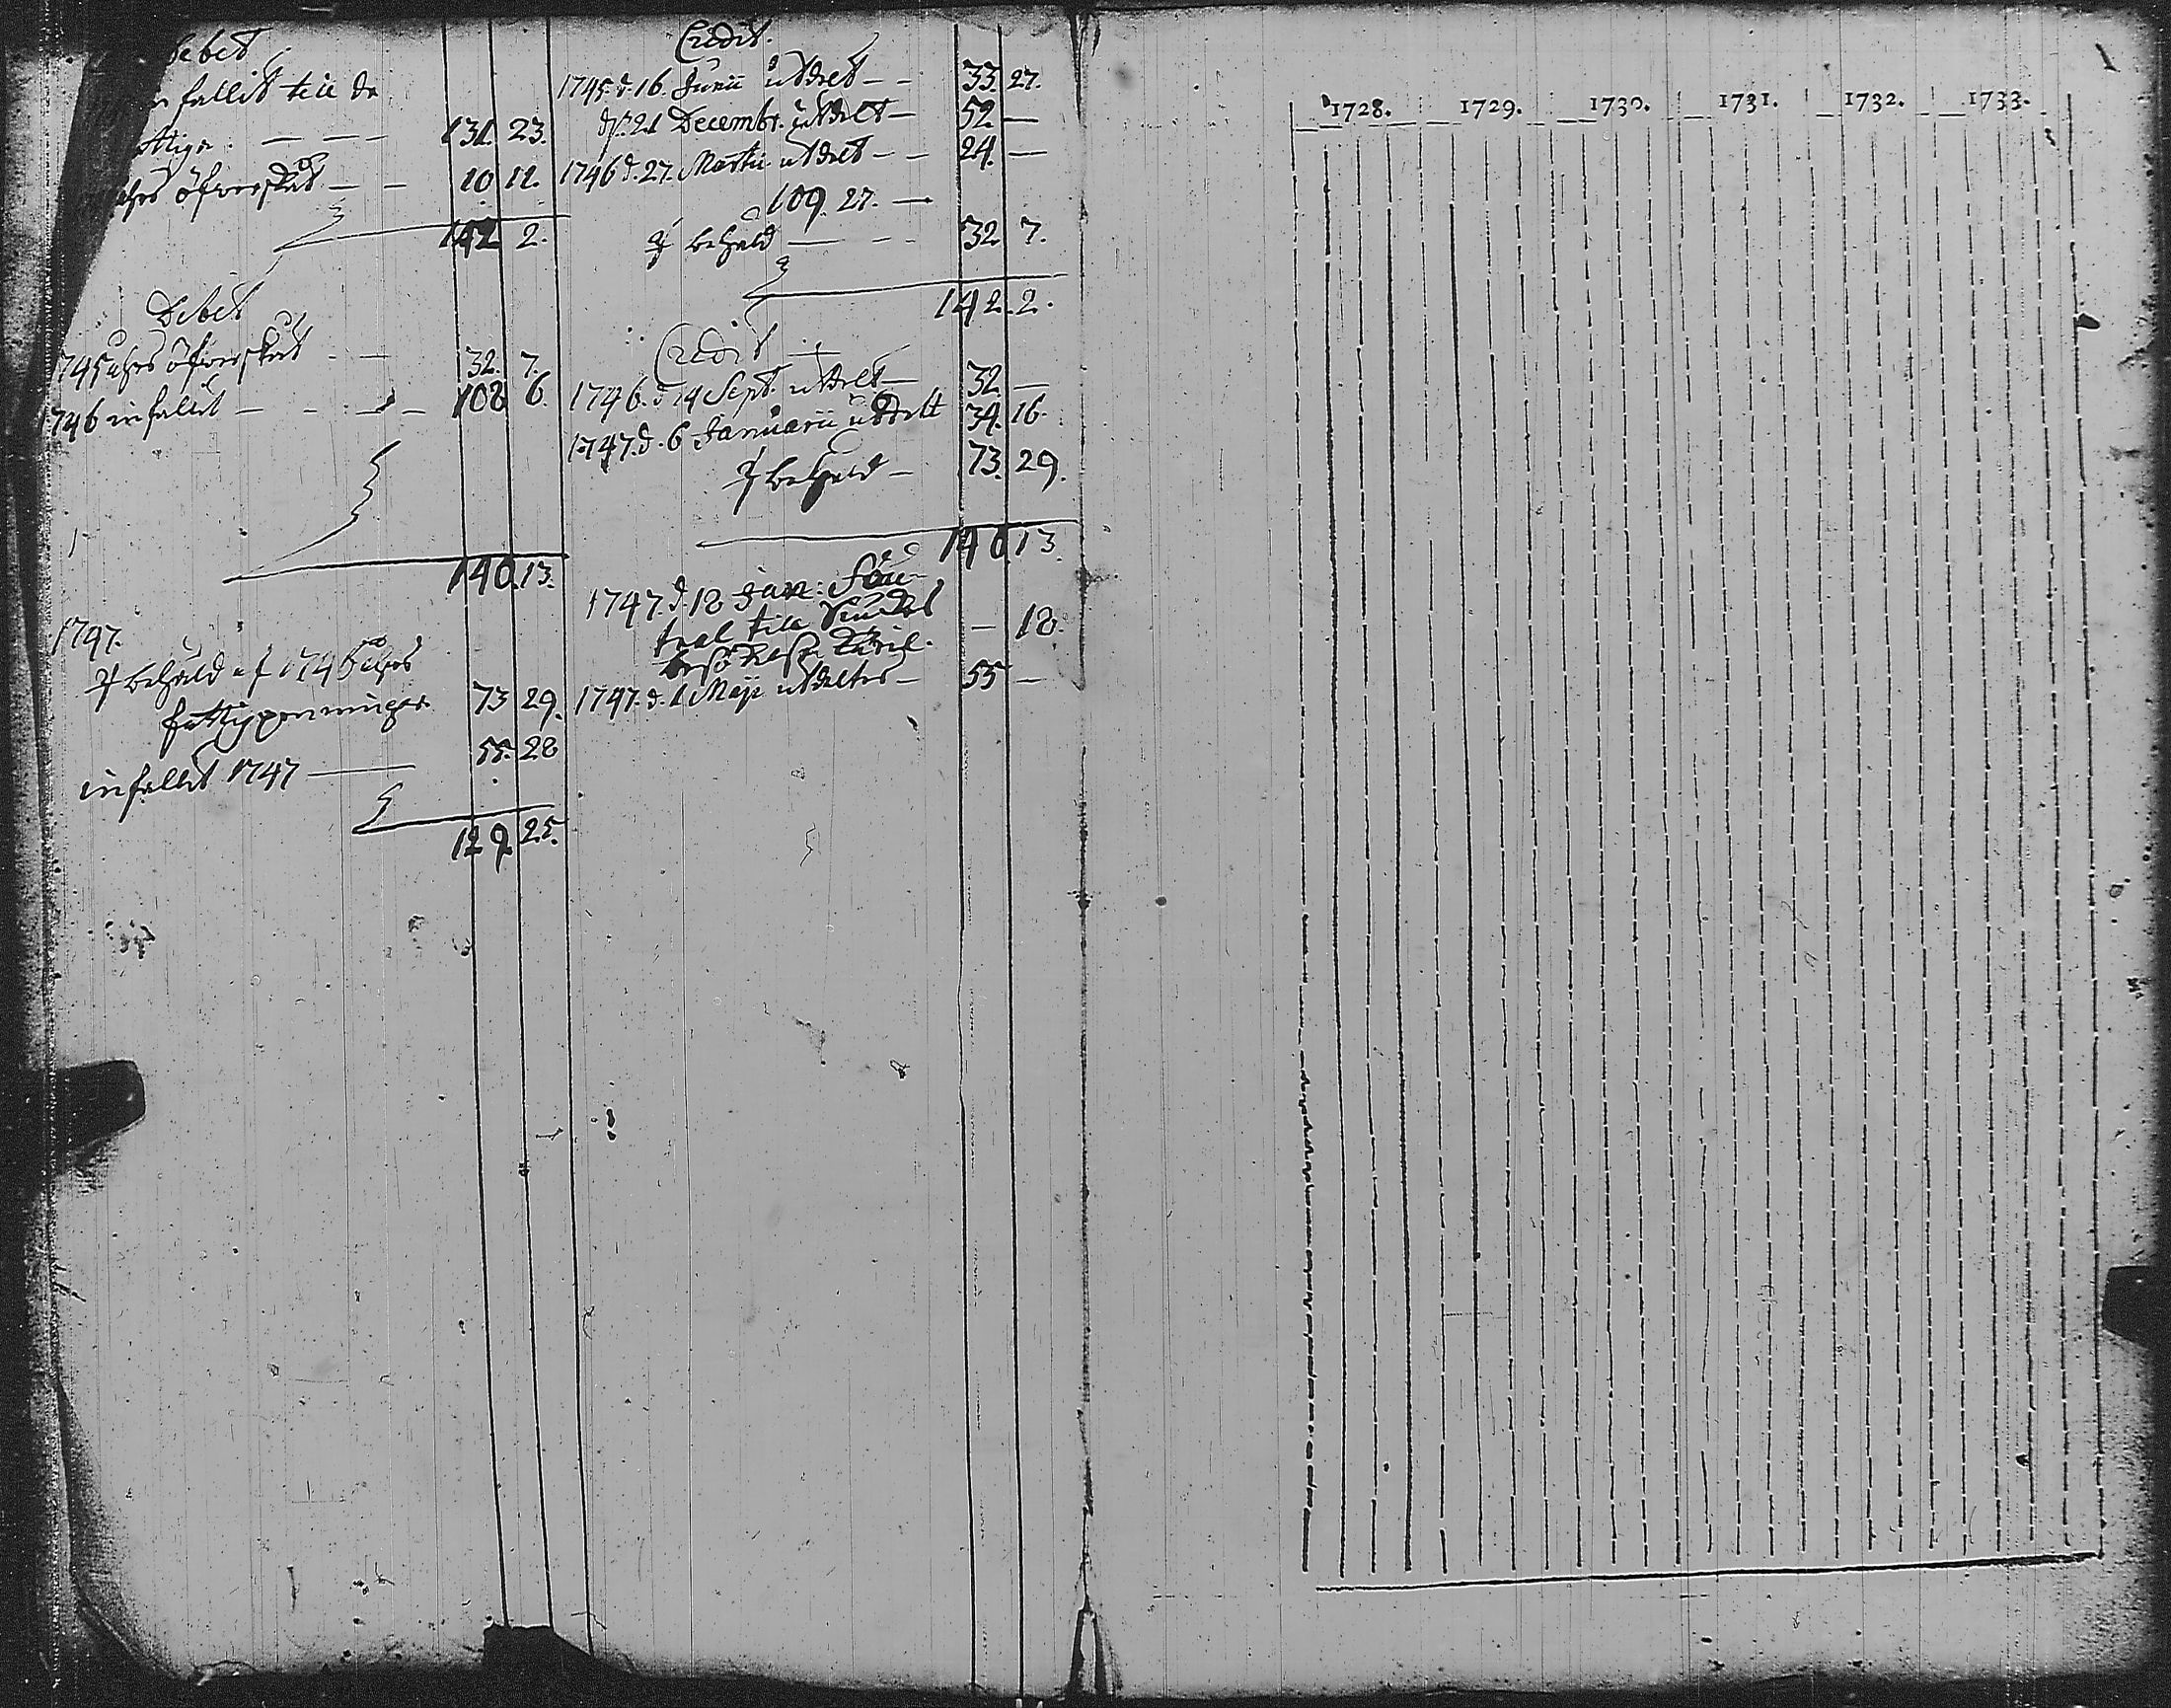 Debet
infallit till de
fattiga: — — — 131. 23.
åhrs öfverskått — — 10 11.
142 2.
Debet
1745 åhrs öfverskått — — 32. 7.
1746 infallit — — — 108 6.
140. 13.
1747.
Behåld af 1746 åhrs
fattigpenningar 73 29.
infallit 1747 — 55. 28
129 25.
Credit.
1745 d. 16. Junii utdelt — — 33. 27.
d. 21 Decembr. utdelt — 52 —
1746 d. 27. Martii utdelt — — 24. —
109. 27. —
behåld — — — 32 7.
142. 2.
Credit
1746. d. 14 Sept. utdelt — 32 —
1747. d. 6 Januarii utdelt 34. 16.
behåld — 73. 29.
140 13.
1747. d. 18 Jan:
till — 18.
1747. d. 1 Maji utdeltes — 55 —
1728. 1729. 1730. 1731. 1732. 1733.